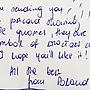 sending you
postcard showing
gnomes, they are
symbol of
hope you'll like it!
All the best
from Poland